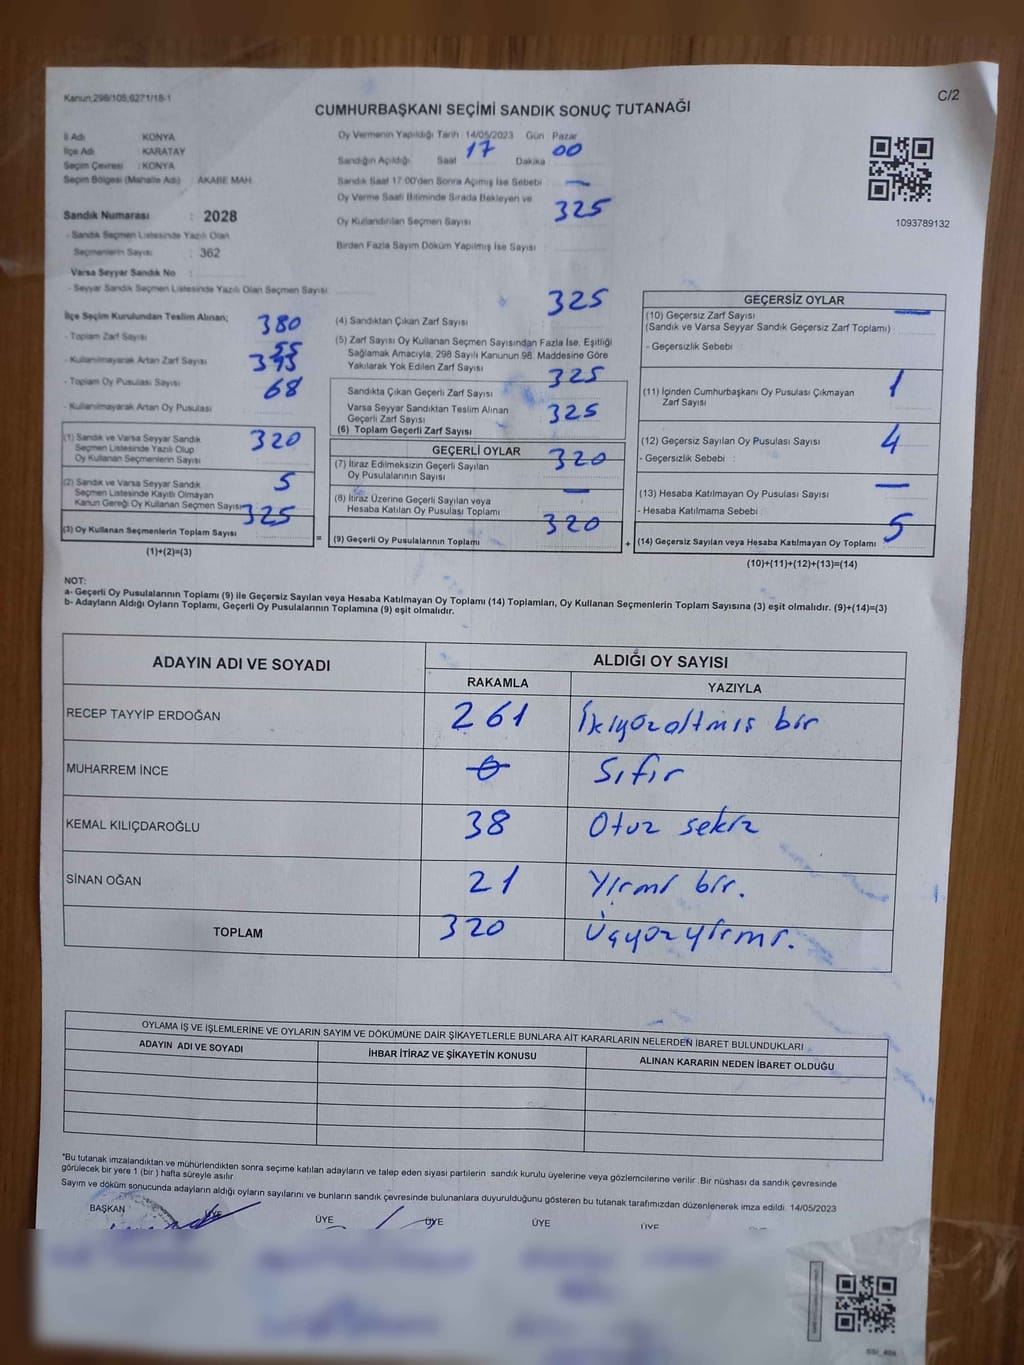 Kanun,298/105,6271/18-1
C/2
CUMHURBAŞKANI SEÇİMİ SANDIK SONUÇ TUTANAĞI
İl Adı KONYA
İlçe Adı KARATAY
Seçim Çevresi : KONYA
Seçim Bölgesi (Mahalle Adı) : AKABE MAH.
Sandık Numarası : 2028
- Sandık Seçmen Listesinde Yazılı Olan
Seçmenlerin Sayısı : 362
Varsa Seyyar Sandık No :
- Seyyar Sandık Seçmen Listesinde Yazılı Olan Seçmen Sayısı:
Oy Vermenin Yapıldığı Tarih 14/05/2023 Gün Pazar
Sandığın Açıldığı Saat 17 Dakika 00
Sandık Saat 17:00'den Sonra Açımış İse Sebebi —
Oy Verme Saati Bitiminde Sırada Bekleyen ve
Oy Kullandırılan Seçmen Sayısı 325
Birden Fazla Sayım Döküm Yapılmış İse Sayısı
1093789132
İlçe Seçim Kurulundan Teslim Alınan;
- Toplam Zarf Sayısı 380
- Kullanılmayarak Artan Zarf Sayısı 55
- Toplam Oy Pusulası Sayısı
- Kullanılmayarak Artan Oy Pusulası 68
(1) Sandık ve Varsa Seyyar Sandık
Seçmen Listesinde Yazılı Olup
Oy Kullanan Seçmenlerin Sayısı 320
(2) Sandık ve Varsa Seyyar Sandık
Seçmen Listesinde Kayıtlı Olmayan
Kanun Gereği Oy Kullanan Seçmen Sayısı 5
(3) Oy Kullanan Seçmenlerin Toplam Sayısı 325
(1)+(2)=(3)
(4) Sandıktan Çıkan Zarf Sayısı 325
(5) Zarf Sayısı Oy Kullanan Seçmen Sayısından Fazla İse, Eşitliği
Sağlamak Amacıyla, 298 Sayılı Kanunun 98. Maddesine Göre
Yakılarak Yok Edilen Zarf Sayısı
Sandıkta Çıkan Geçerli Zarf Sayısı 325
Varsa Seyyar Sandıktan Teslim Alınan
Geçerli Zarf Sayısı
(6) Toplam Geçerli Zarf Sayısı 325
GEÇERLİ OYLAR
(7) İtiraz Edilmeksizin Geçerli Sayılan
Oy Pusulalarının Sayısı 320
(8) İtiraz Üzerine Geçerli Sayılan veya
Hesaba Katılan Oy Pusulası Toplamı —
=
(9) Geçerli Oy Pusulalarının Toplamı 320
+
GEÇERSİZ OYLAR
(10) Geçersiz Zarf Sayısı —
(Sandık ve Varsa Seyyar Sandık Geçersiz Zarf Toplamı)
- Geçersizlik Sebebi :
(11) İçinden Cumhurbaşkanı Oy Pusulası Çıkmayan
Zarf Sayısı 1
(12) Geçersiz Sayılan Oy Pusulası Sayısı 4
- Geçersizlik Sebebi :
(13) Hesaba Katılmayan Oy Pusulası Sayısı —
- Hesaba Katılmama Sebebi :
(14) Geçersiz Sayılan veya Hesaba Katılmayan Oy Toplamı 5
(10)+(11)+(12)+(13)=(14)
NOT:
a- Geçerli Oy Pusulalarının Toplamı (9) ile Geçersiz Sayılan veya Hesaba Katılmayan Oy Toplamı (14) Toplamları, Oy Kullanan Seçmenlerin Toplam Sayısına (3) eşit olmalıdır. (9)+(14)=(3)
b- Adayların Aldığı Oyların Toplamı, Geçerli Oy Pusulalarının Toplamına (9) eşit olmalıdır.
ADAYIN ADI VE SOYADI ALDIĞI OY SAYISI
RAKAMLA YAZIYLA
RECEP TAYYİP ERDOĞAN 261 İkiyüzaltmış bir
MUHARREM İNCE 0 Sıfır
KEMAL KILIÇDAROĞLU 38 Otuz sekiz
SİNAN OĞAN 21 Yirmi bir.
TOPLAM 320 Üçyüzyirmi.
OYLAMA İŞ VE İŞLEMLERİNE VE OYLARIN SAYIM VE DÖKÜMÜNE DAİR ŞİKAYETLERLE BUNLARA AİT KARARLARIN NELERDEN İBARET BULUNDUKLARI
ADAYIN ADI VE SOYADI İHBAR İTİRAZ VE ŞİKAYETİN KONUSU ALINAN KARARIN NEDEN İBARET OLDUĞU
*Bu tutanak imzalandıktan ve mühürlendikten sonra seçime katılan adayların ve talep eden siyasi partilerin sandık kurulu üyelerine veya gözlemcilerine verilir. Bir nüshası da sandık çevresinde
görülecek bir yere 1 (bir) hafta süreyle asılır.
Sayım ve döküm sonucunda adayların aldığı oyların sayılarını ve bunların sandık çevresinde bulunanlara duyurulduğunu gösteren bu tutanak tarafımızdan düzenlenerek imza edildi. 14/05/2023
BAŞKAN ÜYE ÜYE ÜYE ÜYE ÜYE